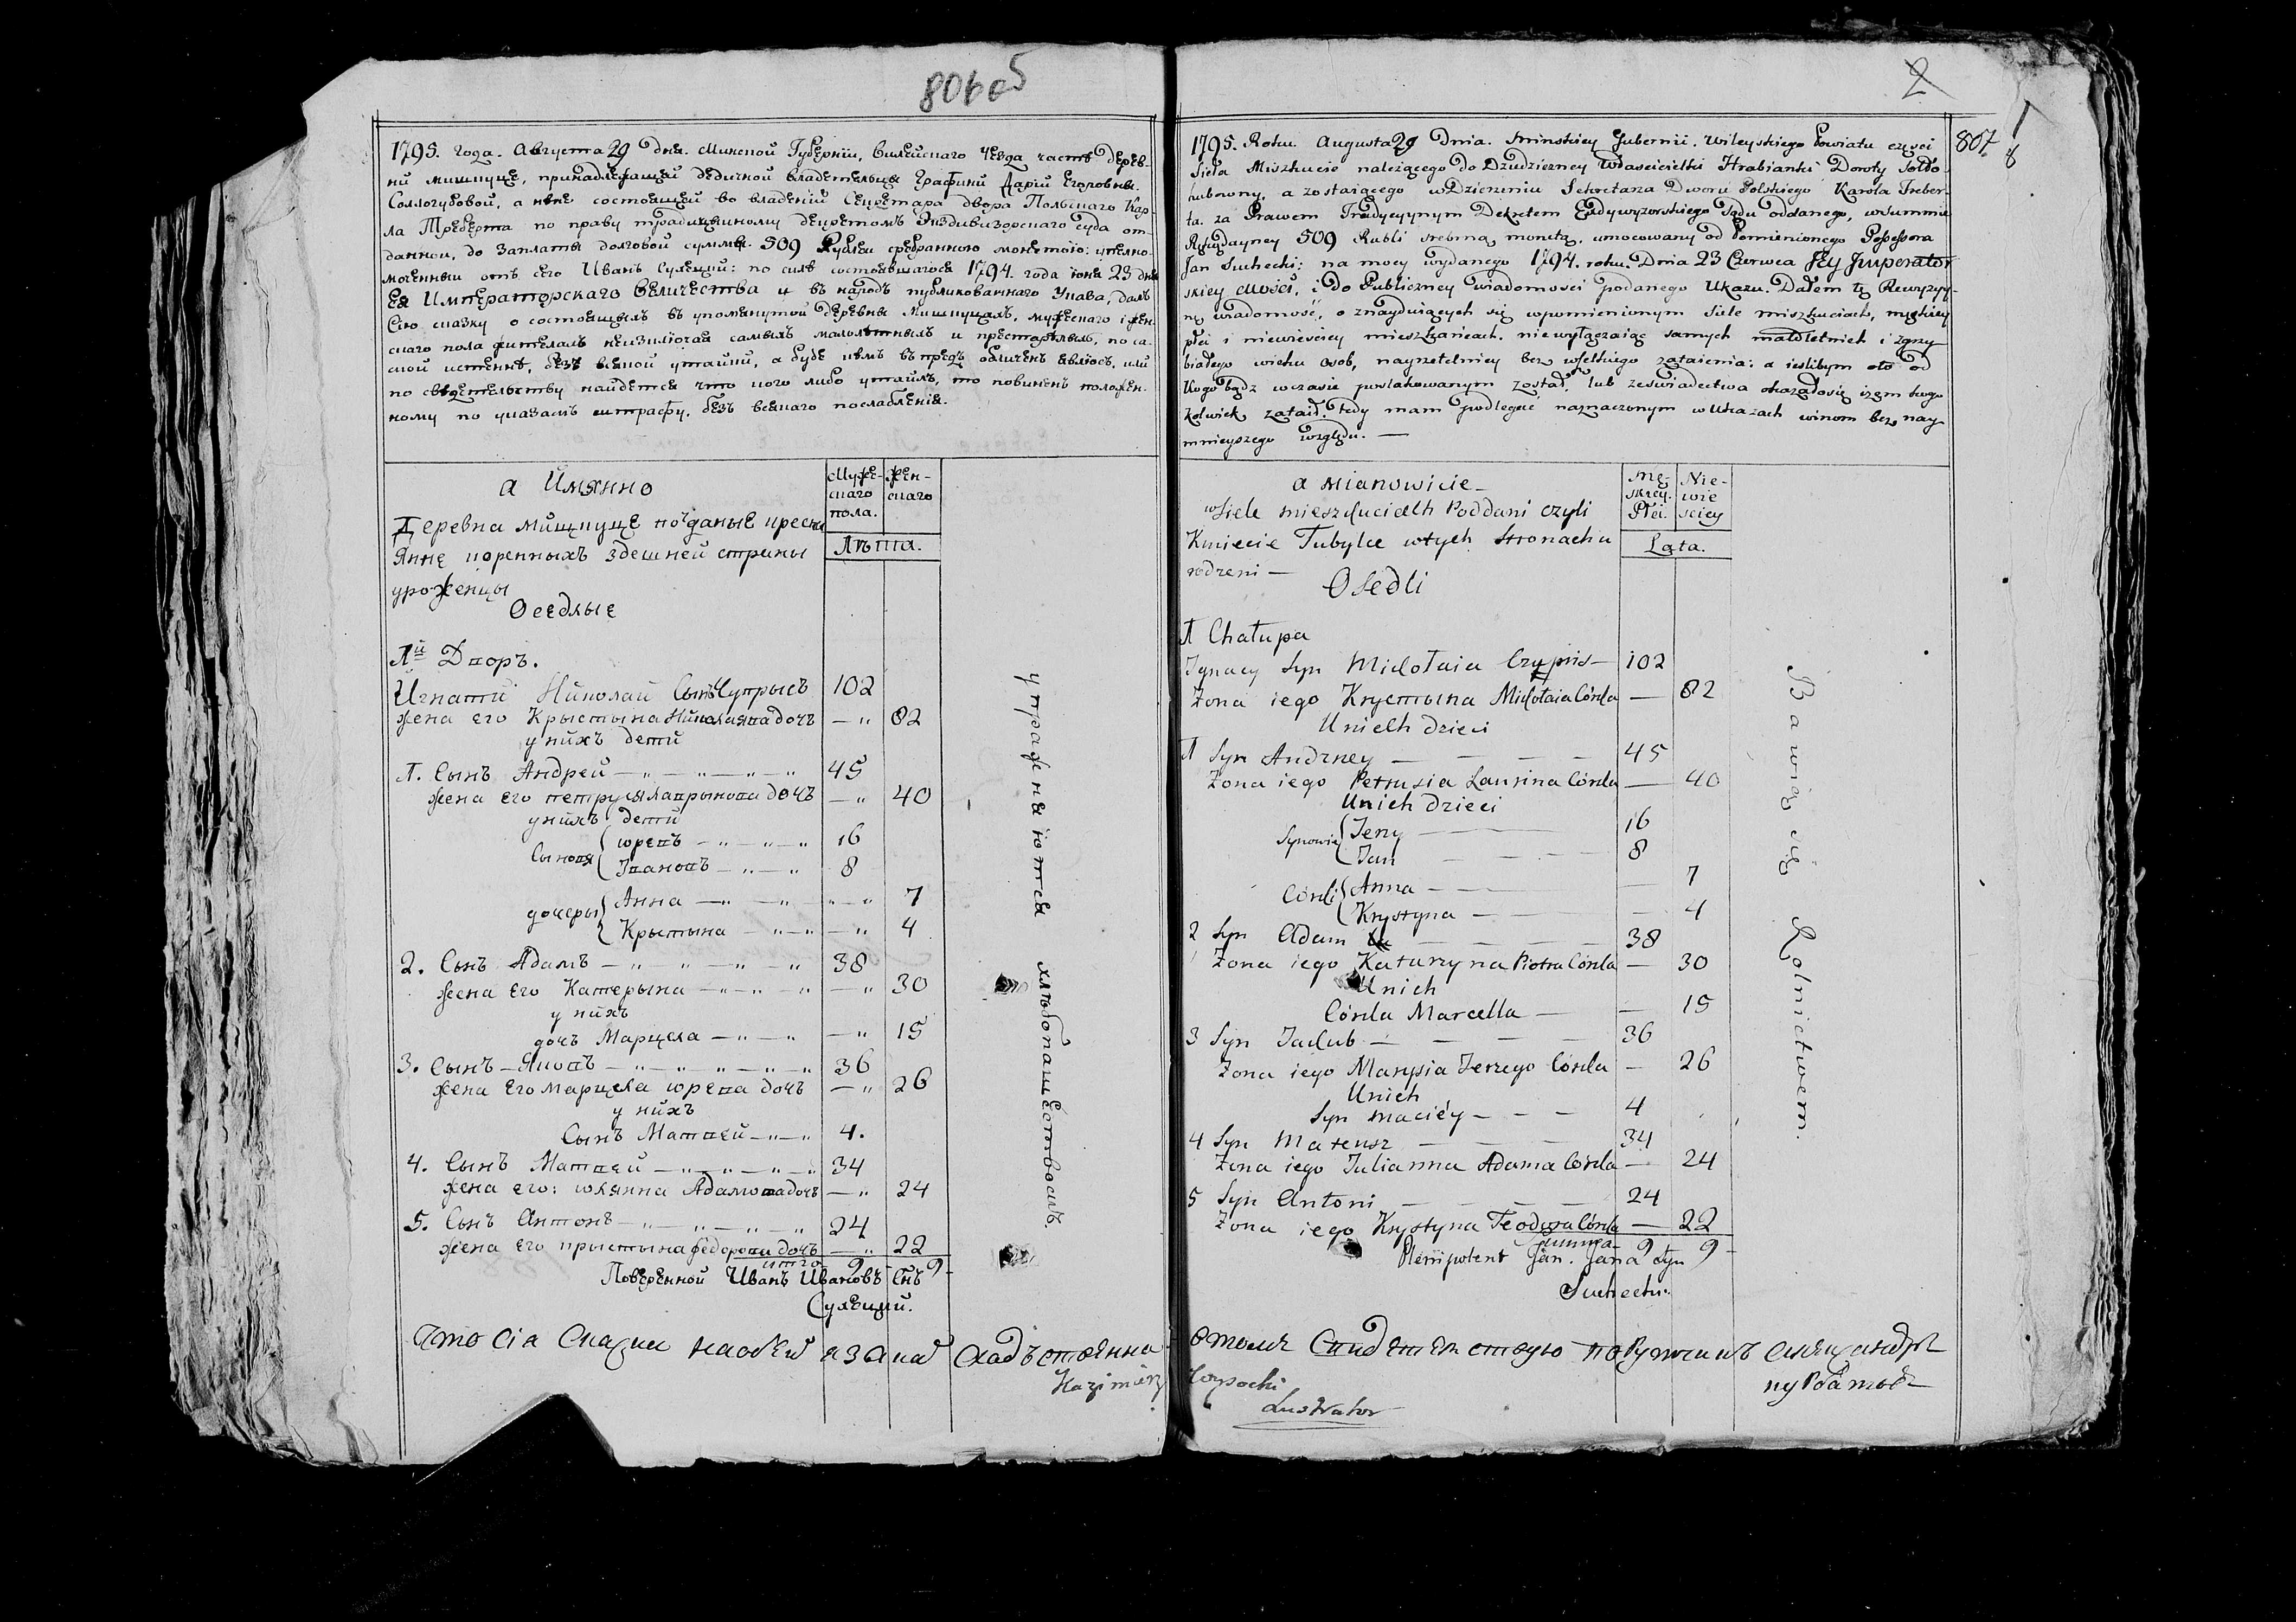 806 об
1795. года. Августа 29 дня. Минской Губерніи, Вилейскаго Уезда часть дерев-
ни Мишкуце, принадлежащей дедичной владетелнице Графини Дарїи Егоровны.
Соллогубовой, а ныне состоящей во владении Секретара двора Полскаго Кар-
ла Треберта по праву традицыиному декретомъ Эксдивизорскаго Суда от-
данной, до заплаты долговой суммы. 509 Рублеи сребранною монетою: уполно-
моченныи отъ его Иванъ Сухецкий: по силе состоявшагося 1794. года июня 23 дня
Ея Императорскаго Величества и въ народъ публикованнаго Указа, далъ
Сїю сказку о состоящихъ въ упомянутой деревне Мишкуцахъ, мужескаго і жен-
скаго пола жителахъ неизключая самыхъ малолетныхъ и престарелыхъ, по са-
мой истенне, безъ всякой утайки, а буде кемъ въпредъ обличенъ явлюсь, или
по свидетельству найдется что кого либо утаилъ, то повиненъ положен-
ному по указамъ штрафу. безъ всякаго послабленїя.
а Имянно
Муже-
скаго
пола.
Жен-
скаго
Деревна Мишкуце подданые кресья
Янне коренныхъ здешней страны
уроженцы
Лѣта.
Оседлые
1й Дворъ.
Игнатій Николай Сынъ Чупрысъ 102
жена его Крыстына Николаява дочъ — " 82
у нихъ дети
1. Сынъ Андрей — " — " — " — " 45
жена его петруся лаврынова дочъ — " 40
у нихъ дети
Сыновя { юревъ — " — " — " 16
Ївановъ — " — " 8
дочеры { Анна — " — " " — " 7
Крытына — " — " — " 4
2. Сынъ Адамъ — " — " — " — " 38
жена его Катерына — " — " — " — " 30
у нихъ
дочъ Марцела — " — " — " 15
3. Сынъ — Яковъ — " — " — " — " — " 36
жена его марцела юрева дочъ — " 26
у нихъ
Сынъ Матвей — " — " 4.
4. Сынъ Матвей — " — " — " — " 34
жена его: юлянна Адамова дочъ — " 24
5. Сынъ Антонъ — " — " — " — " 24
жена его крыстына федорова дочъ — " 22
итго 9 - 9 -
Поверенной Иванъ Ивановъ Снъ
Сухецкий.
упражняются хлѣбопашествомъ.
2
807
1795. Roku. Augusta 29 Dnia. Minskiey Gubernii. Wileyskiego Powiatu częsci
Sieła Miszkucie należącego do Dziedziczney Właścicielki Hrabianki Doroty Sołło-
hubowny, a zostaiącego w Dzierzeniu Sekretarza Dworu Polskiego Karola Treber-
ta. za Prawem Tradycyinym Dekretem Exdywizorskiego Sądu oddanego, w Summie
509 Rubli srebrną monetą, umocowany od Pomienionego Possessora
Jan Suchecki: na mocy wydanego 1794. roku. Dnia 23 Czerwca Jey Imperator
skiey Mości, i do Publiczney wiadomosci podanego Ukazu. Dałem tę Rewyzyy-
ną wiadomość, o znayduiących się w pomienionym Siele Miszkuciach, męskiey
płci i niewiesciey mieszkańcach. niewyłączaiąc samych małoletnich i zgrzy
białego wieku osob, nayrzetelniey bez wszelkiego zataienia: a ieslibym oto od
kogo bądz wczasie poszlakowanym został, lub zeswiadectwa okazałosię iżem kogo
kolwiek zataił. tedy mam podlegać naznaczonym w Ukazach winom bez nay
mnieyszego względu. —
a Mianowicie —
Mę-
skiey.
Płci.
Nie-
wie
sciey
w Siele Mieszkuciach Poddani czyli
Kmiecie Tubylce w tych Stronach u
rodzeni —
Lata.
Osedli
1 Chałupa
Ignacy Syn Mikołaia Czupris — 102
Żona iego Krystyna Mikołaia Córka — 82
U nich dzieci
1 Syn Andrzey — — — — 45
Żona iego Petrusia Laurina Córka — 40
U nich dzieci
Synowie { Jerzy — — 16
Jan — — — 8
Córki { Anna — — — 7
Krystyna — — — 4
2 Syn Adam — — — — 38
Żona iego Katarzyna Piotra Córka — 30
U nich
Córka Marcella — — 15
3 Syn Jakub — — — — 36
Żona iego Marysia Jerzego Córka — 26
U nich
Syn Maciéy — — — 4
4 Syn Mateusz — — — 34
Żona iego Julianna Adama Córka — 24
5 Syn Antoni — — — — 24
Żona iego Krystyna Teodora Córka — 22
Summa — 9 9 -
Plenipotent Jan. Jana Syn
Suchecki.
Bawią się Rolnictwem.
Что сіа Сказка
отомъ Свидетелствую порутчикъ Александръ
Kazimierz Wysocki
Lustrator